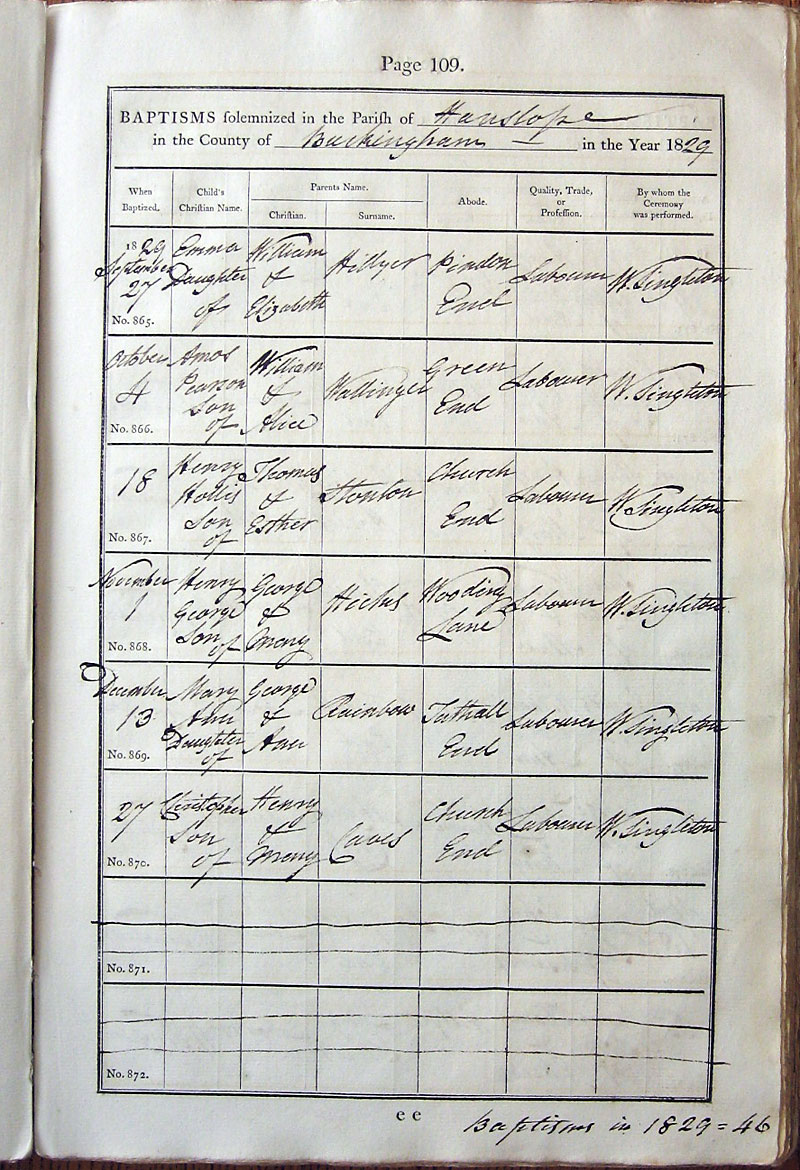 Page 109.
BAPTISMS solemnized in the Parish of Hanslope
in the County of Buckingham in the Year 1829
When Baptized. Child's Christian Name. Parents Name. Christian. Surname. Abode. Quality, Trade, or Profession. By whom the Ceremony was performed.
1829 Emma William
September Daughter & Hillyer Pindon Labourer W. Singleton
27 of Elizabeth End
No. 865.
October Amos William Green
4 Pearson & Wallinger End Labourer W. Singleton
Son of Alice
No. 866.
18 Henry Thomas Church
Hollis & Stonton Labourer W. Singleton
Son of Esther End
No. 867.
November Henry George Wooding
1 George & Hicks Lane Labourer W. Singleton
Son of Mary
No. 868.
December Mary George
13 Ann & Rainbow Tathall Labourer W. Singleton
Daughter of Ann End
No. 869.
27 Christopher Henry Church
Son & Caves Labourer W. Singleton
of Mary End
No. 870.
No. 871.
No. 872.
e e
Baptisms in 1829 = 46